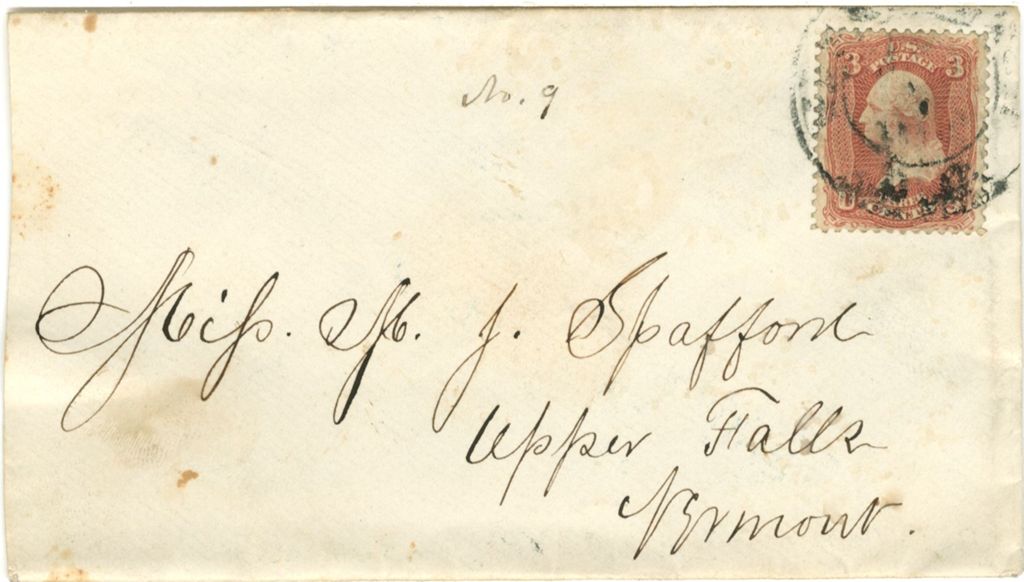 No. 9
3 U.S. POSTAGE 3
Miss. M. J. Spafford
Upper Falls
Vermont.